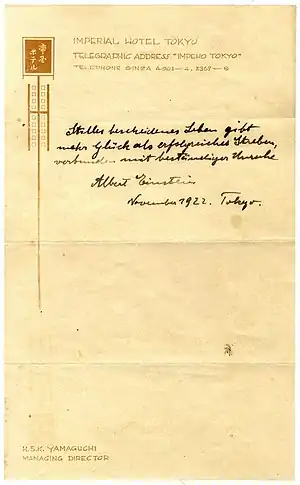 帝国
ホテル
IMPERIAL HOTEL TOKYO
TELEGRAPHIC ADDRESS "IMPEHO TOKYO"
TELEPHONE GINZA 4-901–4, 2367–6
Stilles bescheidenes Leben gibt
mehr Glück als erfolgreiches Streben,
verbunden mit beständiger Unruhe.
Albert Einstein
November 1922. Tokyo.
K.S.K. YAMAGUCHI
MANAGING DIRECTOR